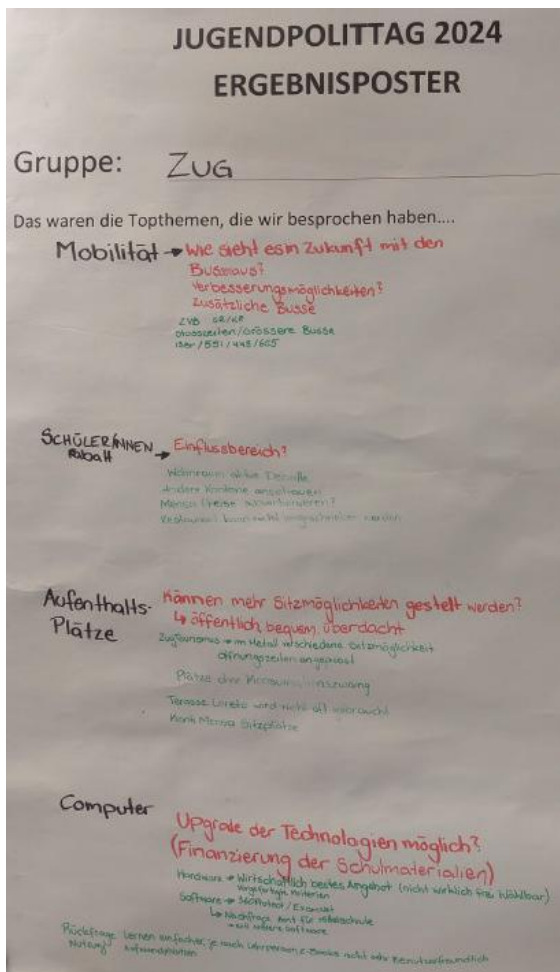 JUGENDPOLITTAG 2024
ERGEBNISPOSTER
Gruppe: ZUG
Das waren die Topthemen, die wir besprochen haben....
Mobilität → Wie sieht es in Zukunft mit den
Bussen aus?
Verbesserungsmöglichkeiten?
Zusätzliche Busse
ZVB GR/KR
Stosszeiten/Grössere Busse
/ 531 / 443 / 605
SCHÜLER/INNEN
Rabatt → Einflussbereich?
Wohnraum aktive
Andere Kantone anschauen
Mensa Preise
Restaurant kann nicht vorgeschrieben werden
Aufenthalts-
Plätze
Können mehr Sitzmöglichkeiten gestellt werden?
↳ öffentlich bequem, überdacht
Zug Tourismus → im Metall verschiedene Sitzmöglichkeit
Öffnungszeiten angepasst
Plätze ohne Konsumationszwang
Terasse Loreto wird nicht oft gebraucht
Kanti Mensa Sitzplätze
Computer
Upgrade der Technologien möglich?
(Finanzierung der Schulmaterialien)
Hardware → Wirtschaftlich bestes Angebot (nicht wirklich frei wählbar)
Kriterien
Software →
↳ Nachfrage Amt für Mittelschule
Software
Rückfrage Lernen einfacher, je nach Lehrperson, E-Books nicht sehr Benutzerfreundlich
Nutzung